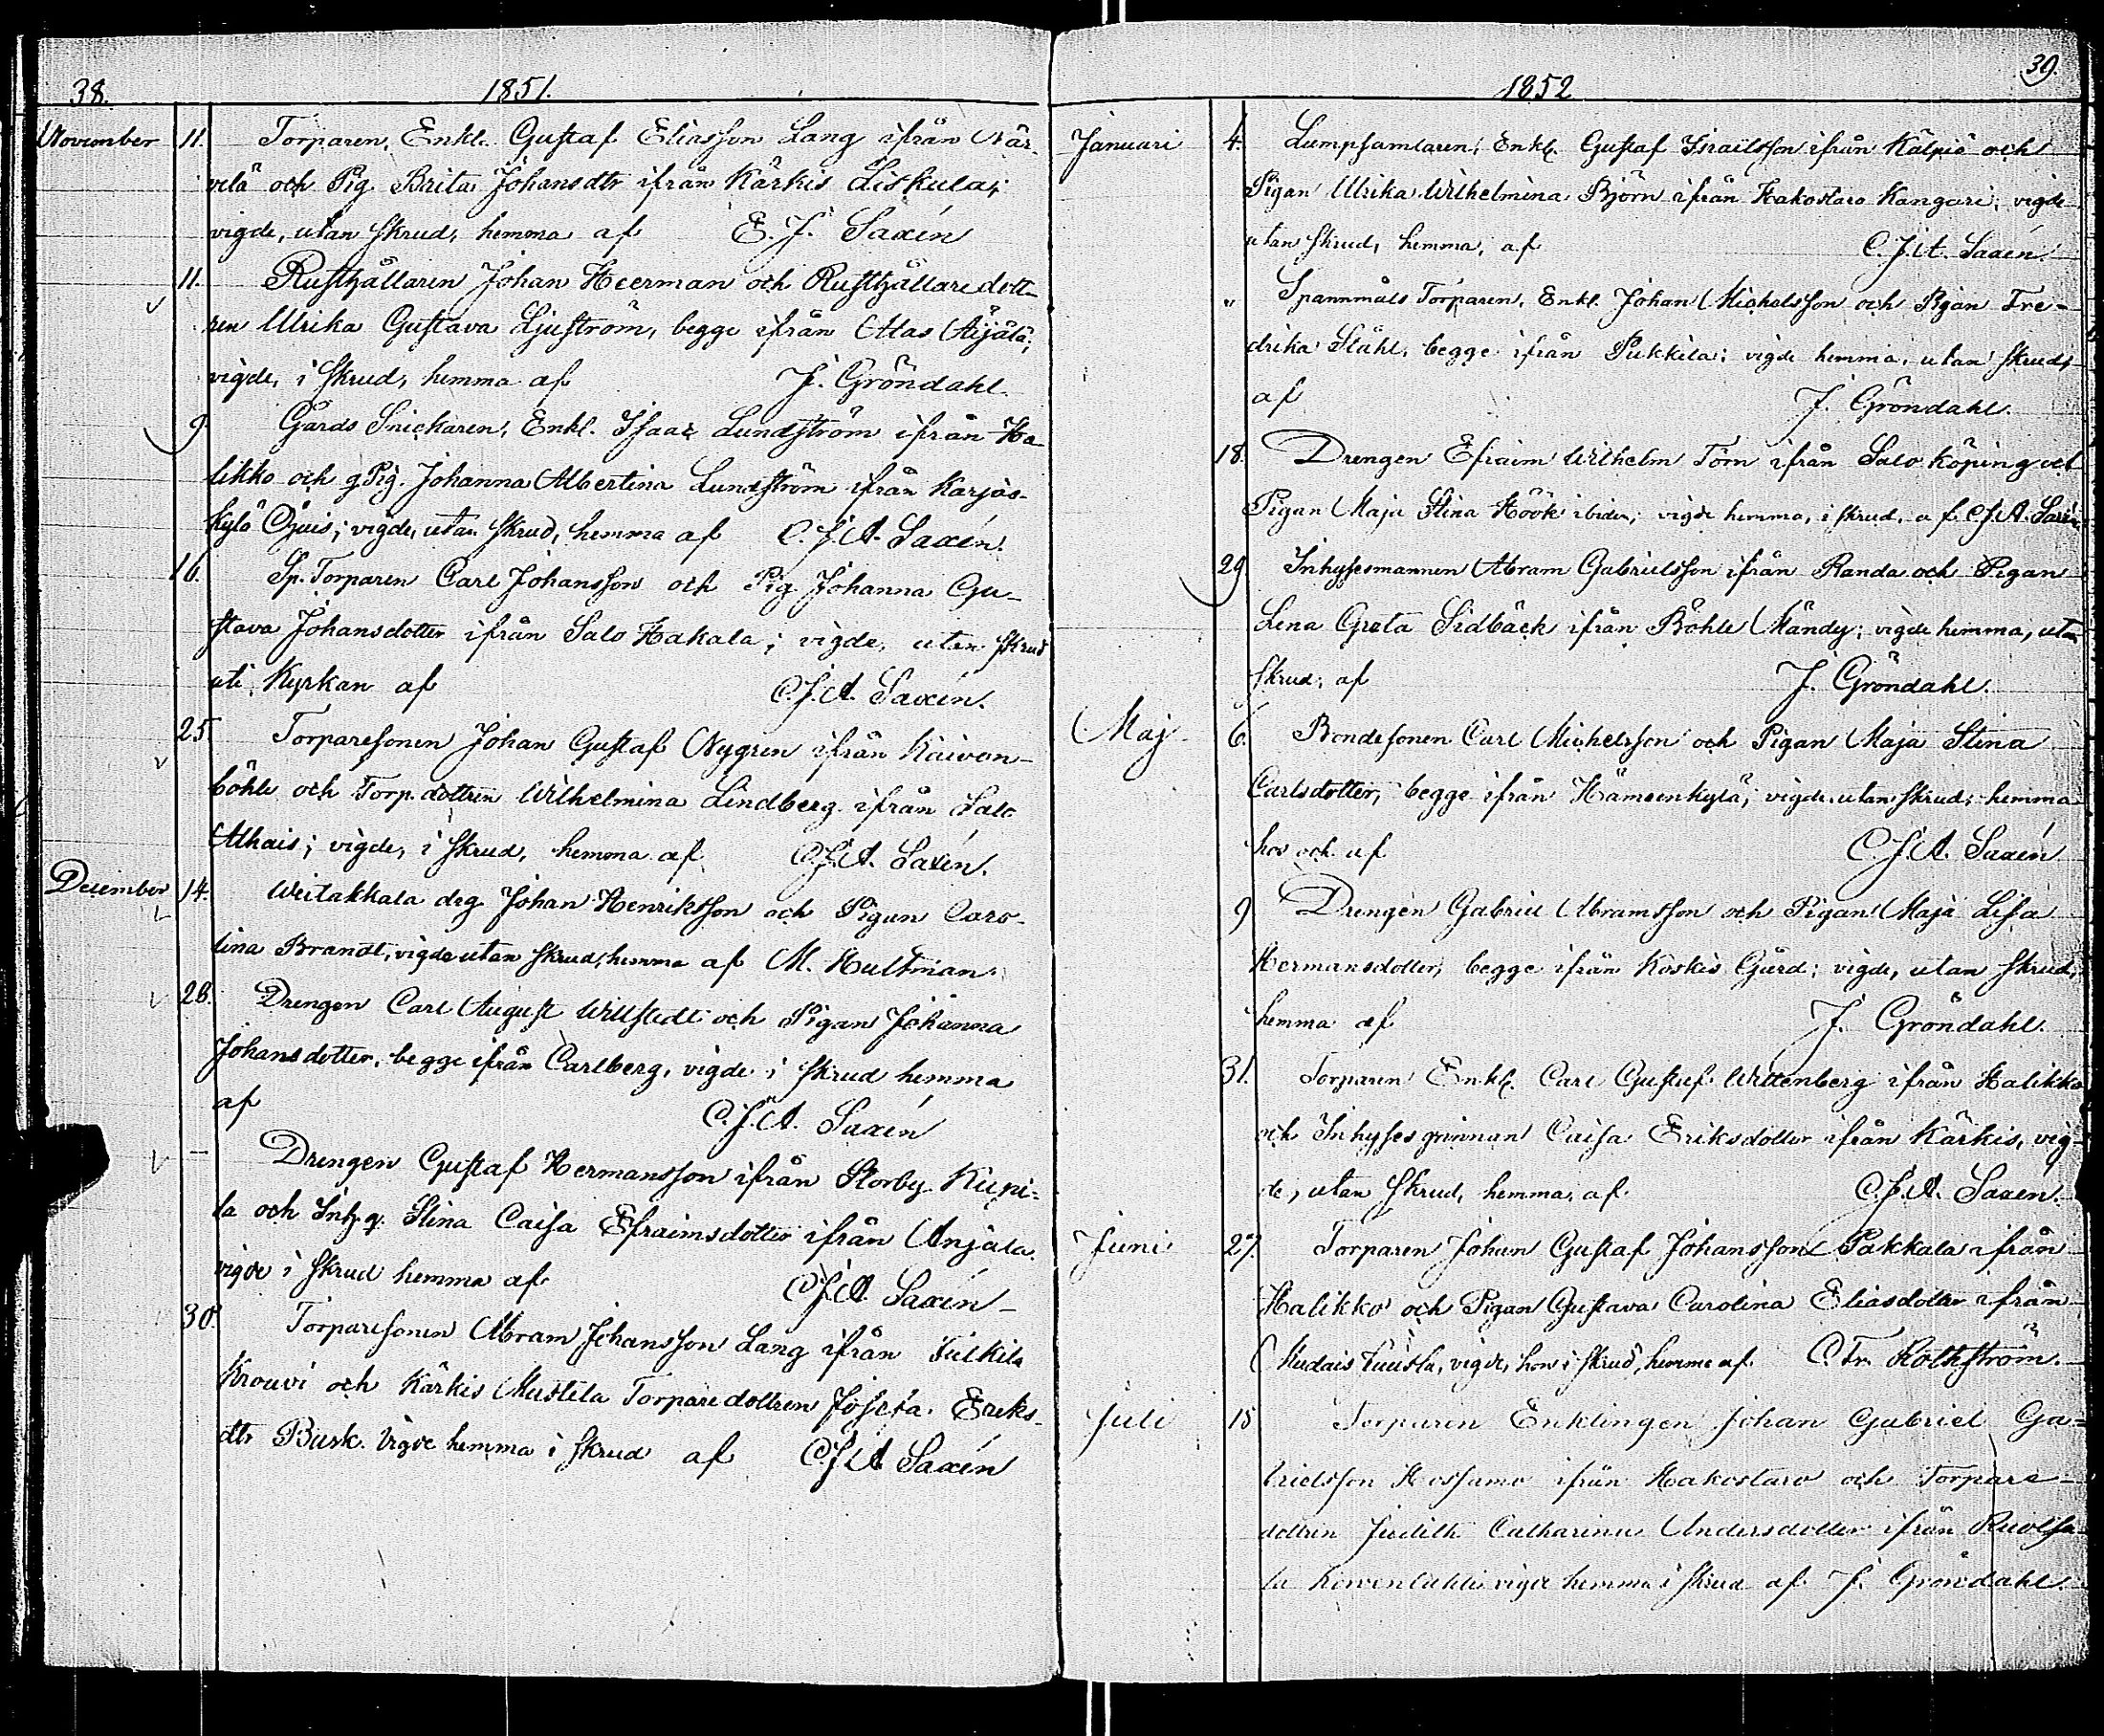 38.
1851.
November 11. Torparen, Enkl. Gustaf Eliasson Lang ifrån När-
velä och Pig. Brita Johansdtr ifrån Kärkis Liskula;
vigde, utan skrud, hemma af E. J. Saxén
11. Rusthållaren Johan Heerman och Rusthållaredott-
ren Ulrika Gustava Ljuström, begge ifrån Alas Äijälä;
vigde, i skrud, hemma af J. Gröndahl.
9. Gårds Snickaren, Enkl. Isaac Lundström ifrån Ha-
likko och g Pig. Johanna Albertina Lundström ifrån Karjas-
kylä Öjuis; vigde, utan skrud, hemma af C. J. A. Saxén.
16. Sp. Torparen Carl Johansson och Pig. Johanna Gu-
stava Johansdotter ifrån Salo Hakala; vigde, utan skrud
uti Kyrkan af C. J. A. Saxén.
25 Torparesonen Johan Gustaf Nygren ifrån Kaivon-
böhle och Torp. dottren Wilhelmina Lindberg ifrån Salo
Alhais; vigde, i skrud, hemma af C. J. A. Saxén.
December 14. Weitakkala drg Johan Henriksson och Pigan Caro-
lina Brandt, vigde utan skrud, hemma af M. Hultman.
28. Drengen Carl August Willstedt och Pigan Johanna
Johansdotter, begge ifrån Carlberg, vigde i skrud hemma
af C. J. A. Saxén
– Drengen Gustaf Hermansson ifrån Storby Kupi-
la och Inh. q. Stina Caisa Efraimsdotter ifrån Anjala.
vigde i skrud hemma af C. J. A. Saxén –
30. Torparesonen Abram Johansson Lang ifrån Tulkila
Krouvi och Kärkis Mustila Torparedottren Josefa Eriks-
dtr Busk. Vigde hemma i skrud af C. J. A Saxén
39.
1852
Januari 4. Lumpsamlaren, Enkl. Gustaf Israilsson ifrån Kälpiö och
Pigan Ulrika Wilhelmina Björn ifrån Hakostaro Kangari; vigde
utan skrud, hemma, af C. J. A. Saxén.
" Spannmåls Torparen, Enkl. Johan Michelsson och Pigan Fre-
drika Ståhl, begge ifrån Pukkila; vigde hemma, utan skrud,
af J. Gröndahl.
18. Drengen Efraim Wilhelm Törn ifrån Salo köping och
Pigan Maja Stina Höök ibidm; vigde hemma, i skrud, af C. J. A. Saxén
29 Inhysesmannen Abram Gabrielsson ifrån Randa och Pigan
Lena Greta Sidbäck ifrån Böhle Mändy; vigde hemma, utan
skrud, af J. Gröndahl.
Maj 6. Bondesonen Carl Michelsson och Pigan Maja Stina
Carlsdotter, begge ifrån Hämeenkylä; vigde utan skrud, hemma
hos och af C. J. A. Saxén
9 Drengen Gabriel Abramsson och Pigan Maja Lisa
Hermansdotter, begge ifrån Koskis Gård; vigde, utan skrud,
hemma af J. Gröndahl.
31. Torparen Enkl. Carl Gustaf Wittenberg ifrån Halikko
och Inhysesqvinnan Caisa Eriksdotter ifrån Kärkis, vig-
de, utan skrud, hemma, af C. J. A. Saxén.
Juni 27. Torparen Johan Gustaf Johansson Pakkala ifrån
Halikko och Pigan Gustava Carolina Eliasdotter ifrån
vigde, hon i skrud, hemma af C. Fr. Rothström.
Juli 15 Torparen Enklingen Johan Gabriel Ga-
brielsson Hossamo ifrån Hakostaro och Torpare-
dottren Judith Catharina Andersdotter ifrån
la vigde hemma i skrud af J. Gröndahl.